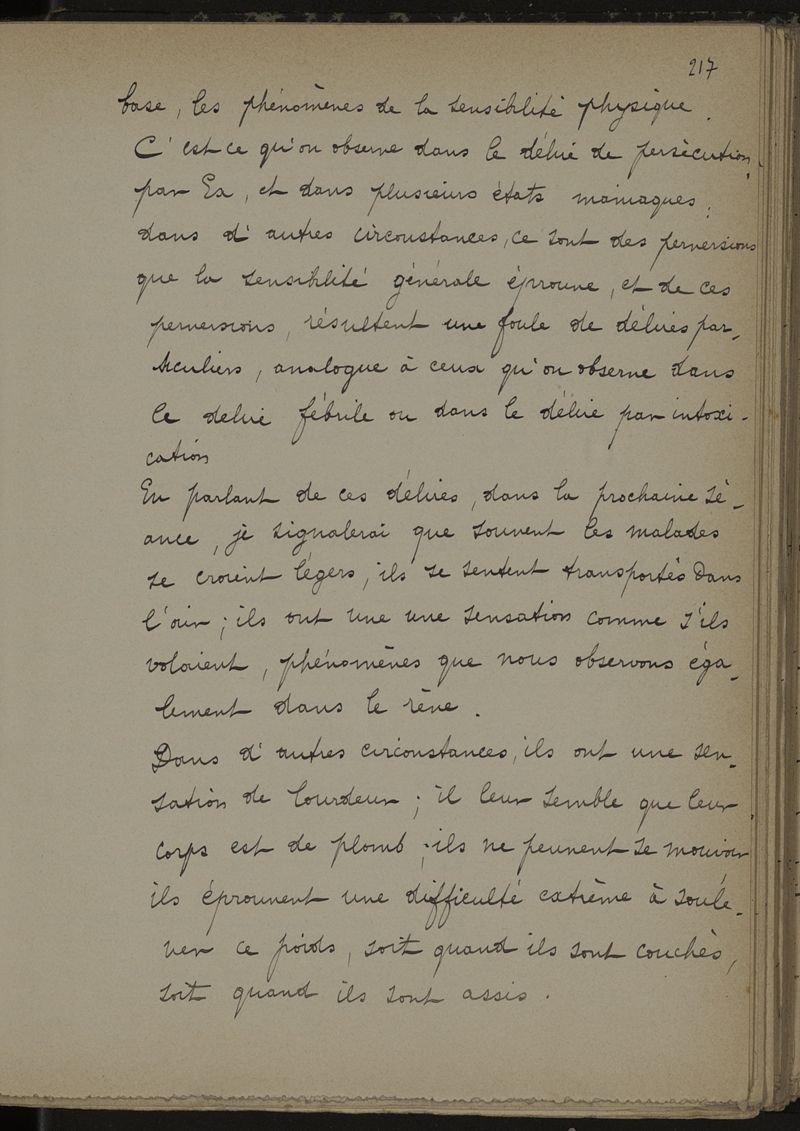 217
base, les phénomènes de la sensibilité physique.
C'est ce qu'on observe dans le délire de persécution,
par Ex, et dans plusieurs états maniaques;
dans d'autres circonstances, ce sont des perversions
que la sensibilité générale éprouve, et de ces
perversions, résultent une foule de délires par-
ticuliers, analogue à ceux qu'on observe dans
le delire fébrile ou dans le délire par intoxi-
cation
En parlant de ces délires, dans la prochaine sé-
ance, je signalerai que souvent les malades
se croient légers, ils se sentent transportés Dans
l'air; ils ont une une sensation comme s'ils
volaient, phénomènes que nous observons éga-
lement dans le rêve.
Dans d'autres circonstances, ils ont une sen-
sation de lourdeur; il leur semble que leur
corps est de plomb; ils ne peuvent se mouvoir
ils éprouvent une difficulté extrème à soule-
ver ce poids, soit quand ils sont couchés,
soit quand ils sont assis.